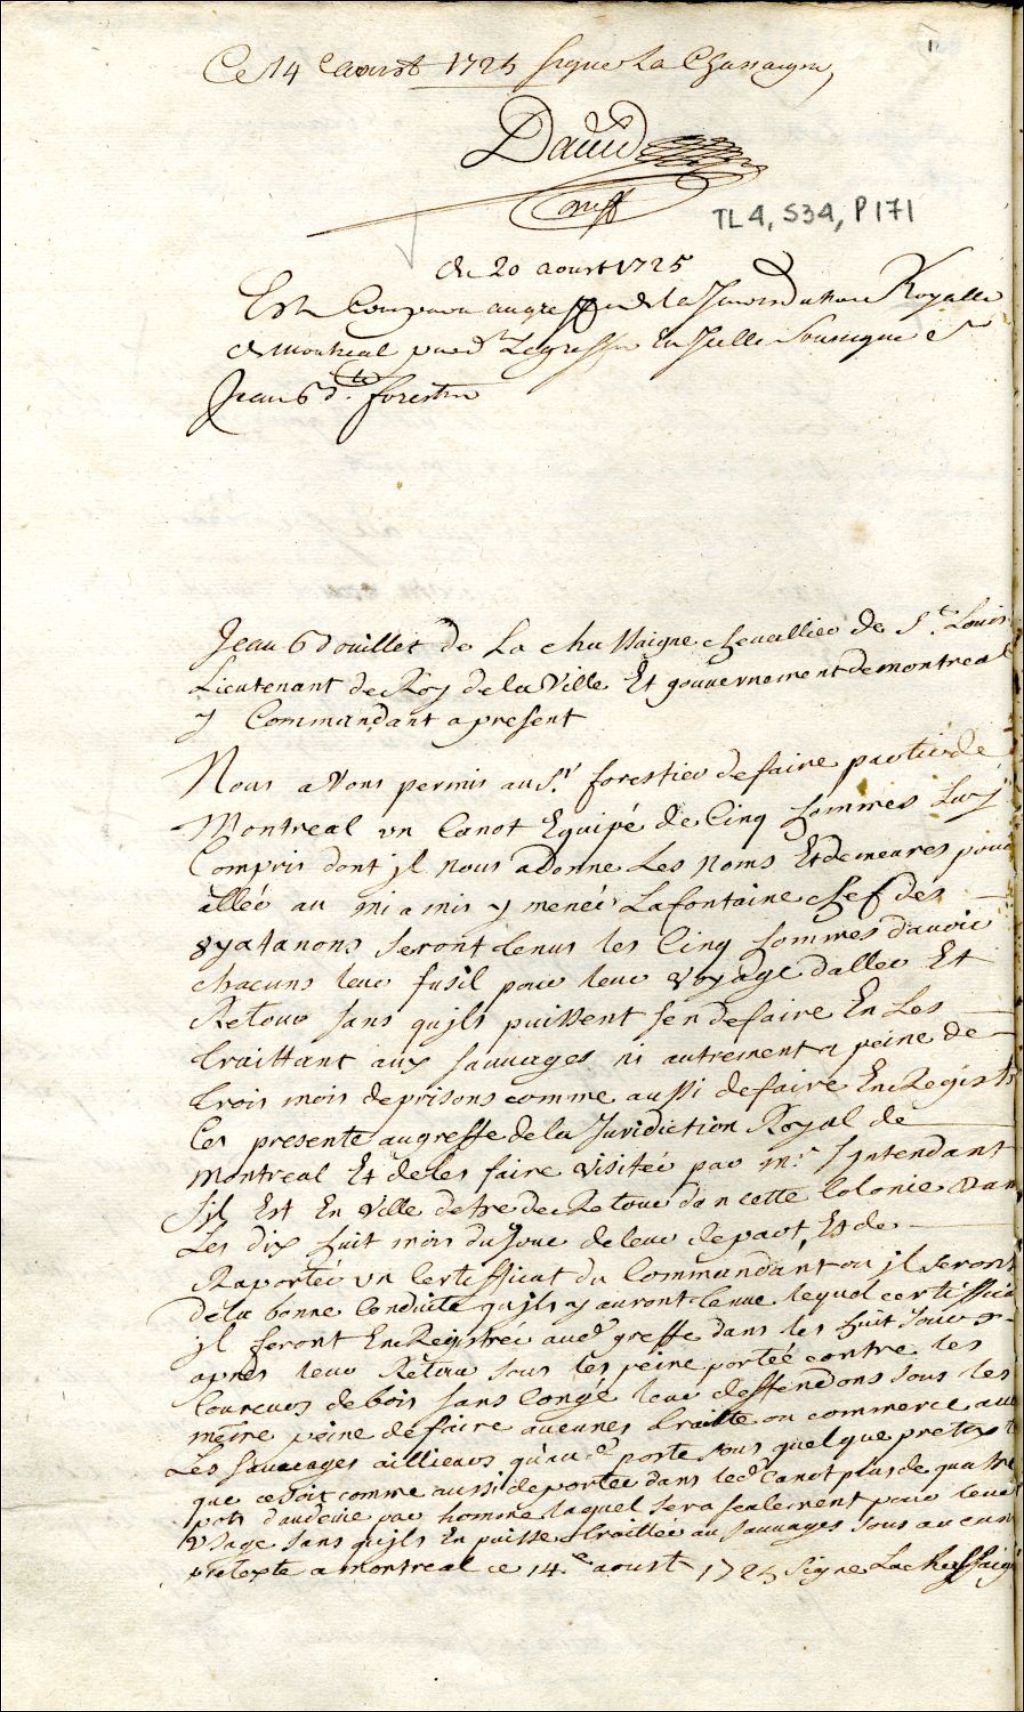 1
Ce 14e aoust 1725 signe La Chassaigne
David
Conss
TL4, S34, P171
du 20 aoust 1725
Est Comparu au greffe de la Jurisdiction Royalle
de montreal pard. Legreffier En Icelle Soussigne
Jean Bte. forestier
Jean Bouillet de La chassaigne chevallier de St. Louis
Lieutenant de Roy de la Ville Et gouvernement de montreal
y Commandant a present
Nous avons permis au Sr. forestier de faire partir de
Montreal un Canot Equipé de Cinq hommes Luy
Compris dont jl nous a donne Les Noms Et demeures pour
aller au miamis y mener Lafontaine chef des
8yatanons seront tenus les Cinq hommes d'avoir
chacuns leur fusil pour leur voyage d'aller Et
Retour sans qujls puissent sen defaire En Les
traittant aux sauvages ni autrement a peine de
trois mois de prisons comme aussi de faire EnRegistr
Ces presente au greffe de la Juridiction Royal de
Montreal Et de les faire visiter par Mr. Jntendant
Sjl Est En Ville detre de Retour dan cette Colonie Dan
Les dix huit mois du Jour de leur depart, Et de
Raporter un Certifficat du Commandant ou jl seront
de la bonne Conduite qujls y auront tenue lequel certifficat
jl feront EnRegistrer aud greffe dans les huit Jours
apres leur Retour sous les peine portée contre les
Coureurs de bois sans Congé leur deffendons sous les
meme peine de faire aucunes traitte ou commerce avec
Les Sauvages aillieurs qu'aud porte sous quelque pretexte
que ce soit comme aussi de porter dans led Canot plus de quatre
pots d'audevie par homme laquel sera seulement pour leur
Usage sans qujls En puisse traitter au sauvages sous aucun
pretexte a montreal ce 14e aoust 1725 Signe Lachassaign